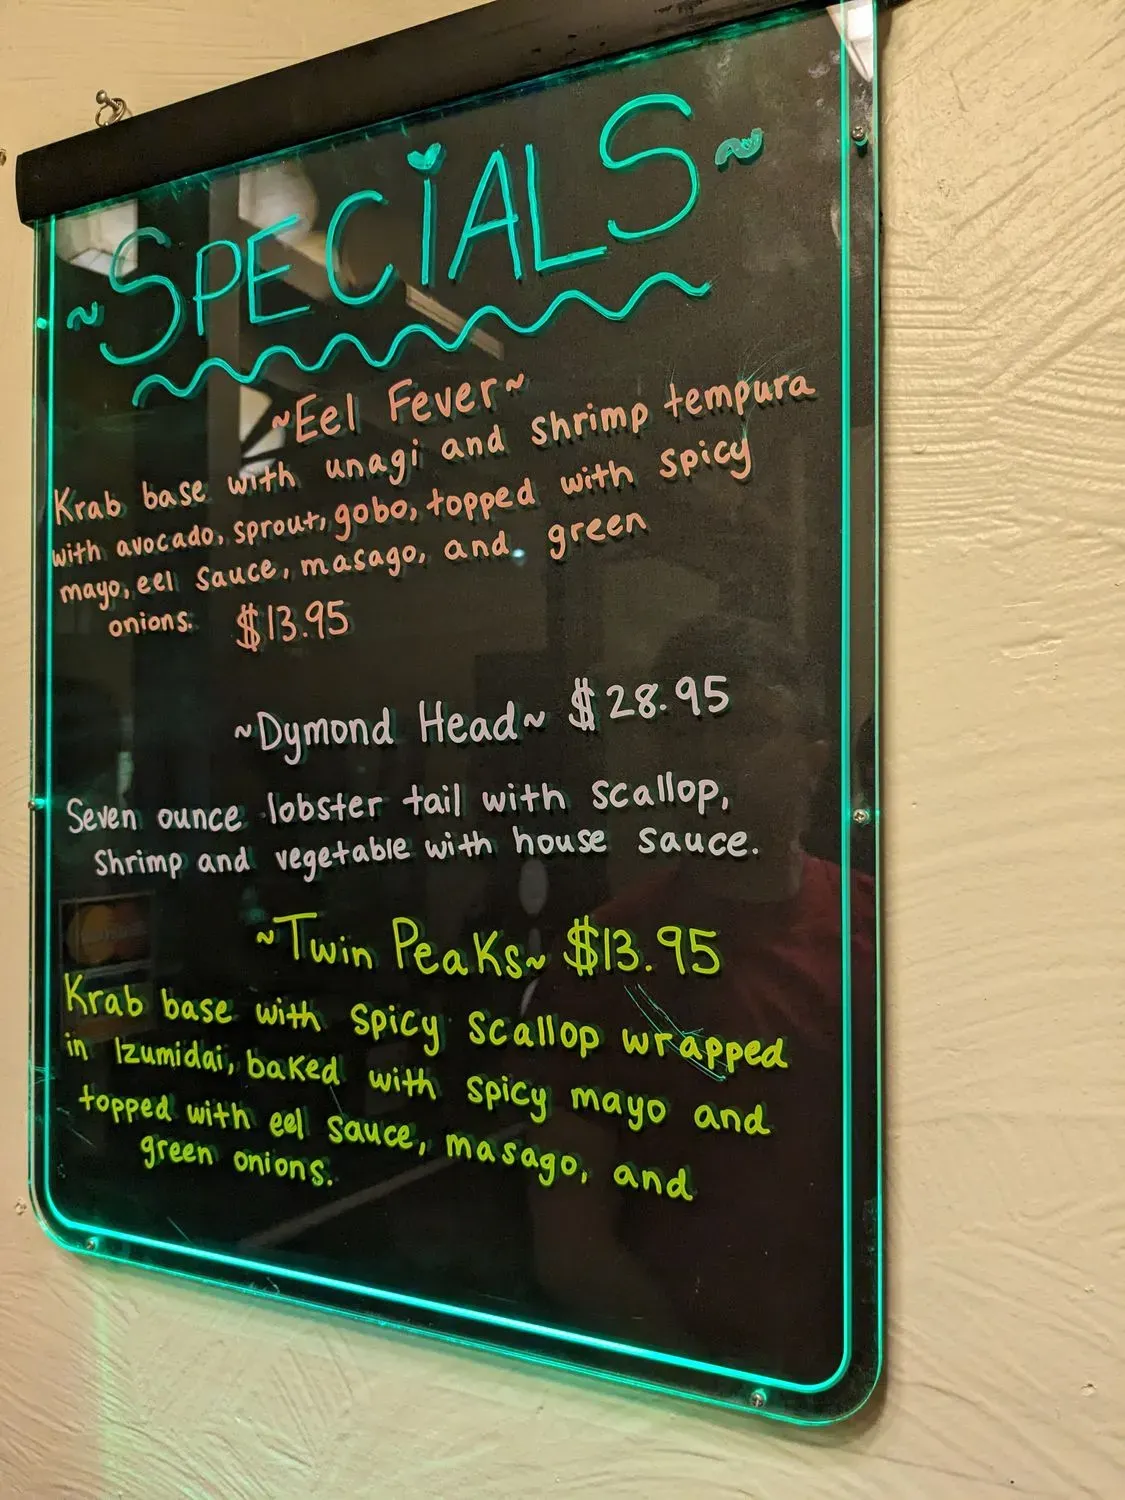 ~SPECiALS~
~Eel Fever~
Krab base with unagi and shrimp tempura
with avocado, sprout, gobo, topped with spicy
mayo, eel sauce, masago, and green
onions. $13.95
~Dymond Head~ $28.95
Seven ounce lobster tail with scallop,
Shrimp and vegetable with house sauce.
~Twin Peaks~ $13.95
Krab base with spicy scallop wrapped
in Izumidai, baked with spicy mayo and
topped with eel sauce, masago, and
green onions.